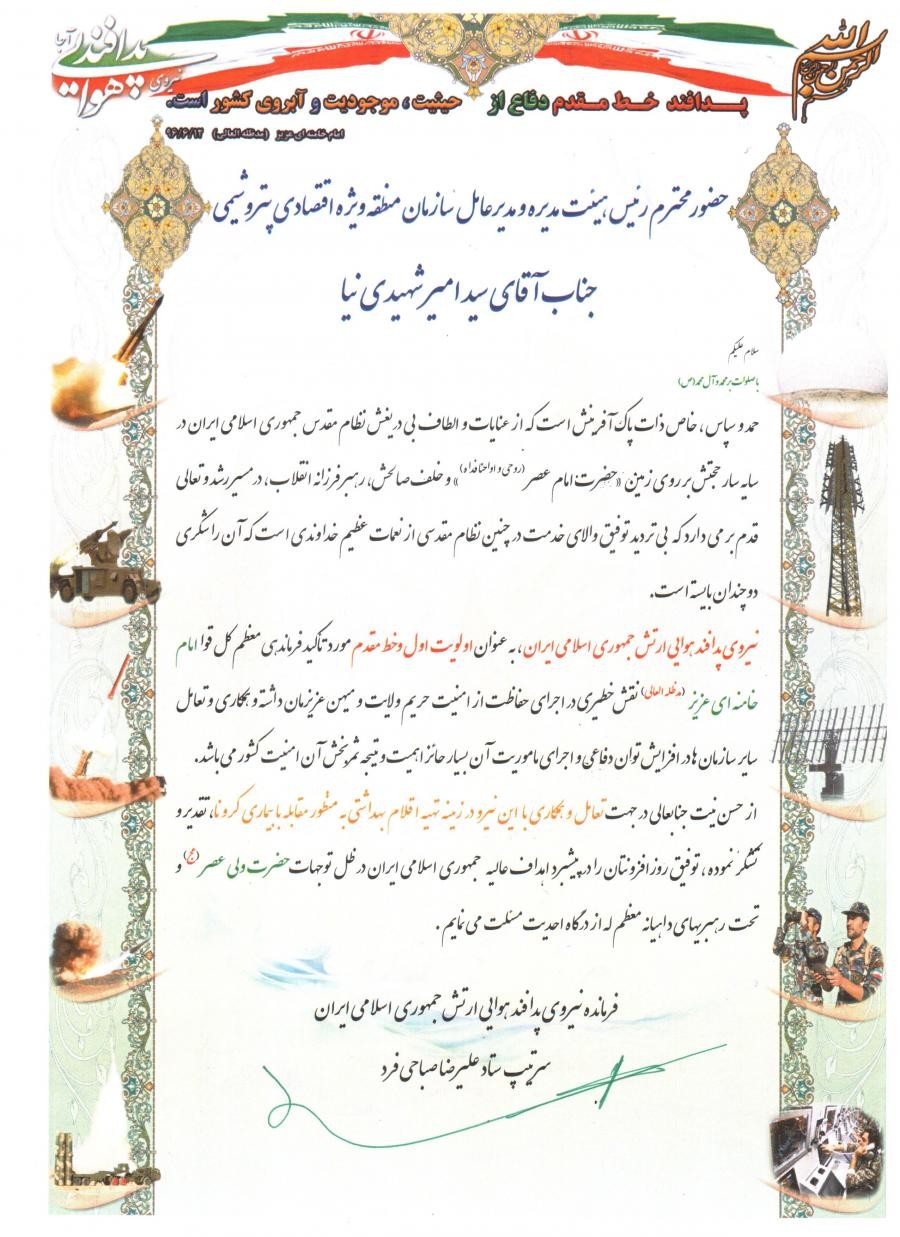 بسم الله الرحمن الرحیم
نیروی پدافند هوایی آجا
پـدافند خـط مـقدم دفاع از حیثیت ، موجودیت و آبروی کشور است.
امام خامنه ای عزیز (مدظله العالی) ۹۶/۶/۱۳
حضور محترم رئیس هیئت مدیره و مدیرعامل سازمان منطقه ویژه اقتصادی پتروشیمی
جناب آقای سید امیر شهیدی نیا
سلام علیکم
با صلوات بر محمد و آل محمد (ص)
حمد و سپاس ، خاص ذات پاک آفرینش است که از عنایات و الطاف بی دریغش نظام مقدس جمهوری اسلامی ایران در
سایه سار حجتش بر روی زمین «حضرت امام عصر (روحی و ارواحنا فداه)» و خلف صالحش، رهبر فرزانه انقلاب، در مسیر رشد و تعالی
قدم بر می دارد که بی تردید توفیق والای خدمت در چنین نظام مقدسی از نعمات عظیم خداوندی است که آن را شکری
دو چندان بایسته است.
نیروی پدافند هوایی ارتش جمهوری اسلامی ایران، به عنوان اولویت اول و خط مقدم مورد تاکید فرماندهی معظم کل قوا امام
خامنه ای عزیز (مدظله العالی) نقش خطیری در اجرای حفاظت از امنیت حریم ولایت و میهن عزیزمان داشته و همکاری و تعامل
سایر سازمان ها در افزایش توان دفاعی و اجرای ماموریت آن بسیار حائز اهمیت و نتیجه ثمربخش آن امنیت کشور می باشد.
از حسن نیت جنابعالی در جهت تعامل و همکاری با این نیرو در زمینه تهیه اقلام بهداشتی به منظور مقابله با بیماری کرونا، تقدیر و
تشکر نموده ، توفیق روز افزونتان را در پیشبرد اهداف عالیه جمهوری اسلامی ایران در ظل توجهات حضرت ولی عصر (عج) و
تحت رهبریهای داهیانه معظم له از درگاه احدیت مسئلت می نمایم .
فرمانده نیروی پدافند هوایی ارتش جمهوری اسلامی ایران
سرتیپ ستاد علیرضا صباحی فرد